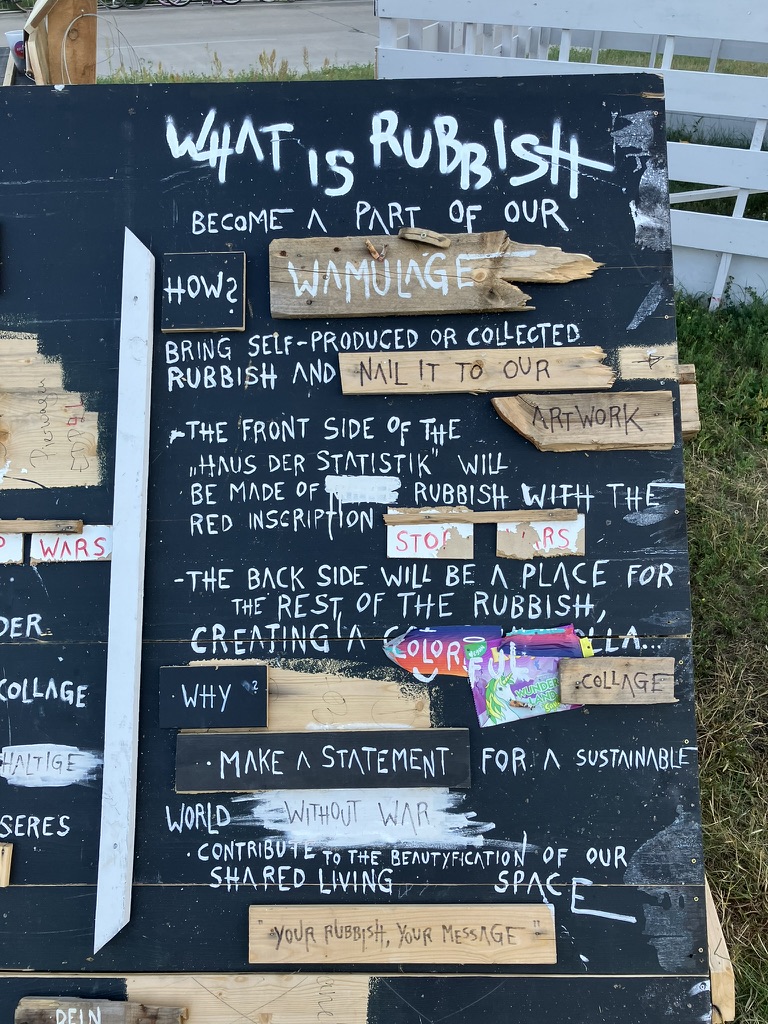 WHAT IS RUBBISH
BECOME A PART OF OUR
HOW?
WAMULAGE
BRING SELF-PRODUCED OR COLLECTED
RUBBISH AND NAIL IT TO OUR
ARTWORK
-THE FRONT SIDE OF THE
„HAUS DER STATISTIK" WILL
BE MADE OF RUBBISH WITH THE
RED INSCRIPTION
STOP
RS
-THE BACK SIDE WILL BE A PLACE FOR
THE REST OF THE RUBBISH,
CREATING A
COLORFUL
COLLAGE
WHY?
· MAKE A STATEMENT FOR A SUSTAINABLE
WORLD WITHOUT WAR
· CONTRIBUTE TO THE BEAUTYFICATION OF OUR
SHARED LIVING SPACE
"YOUR RUBBISH, YOUR MESSAGE"
P WARS
DER
COLLAGE
HALTIGE
SERES
DEIN
WUNDER
LAND